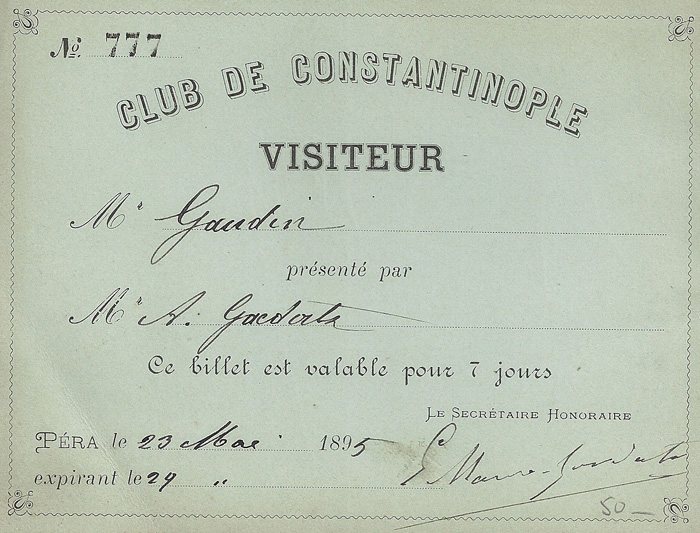 No. 777
CLUB DE CONSTANTINOPLE
VISITEUR
Mr Gaudin
présenté par
Mr A.
Ce billet est valable pour 7 jours
LE SECRÉTAIRE HONORAIRE
PÉRA le 23 Mai 1895
expirant le 29 "
50 —